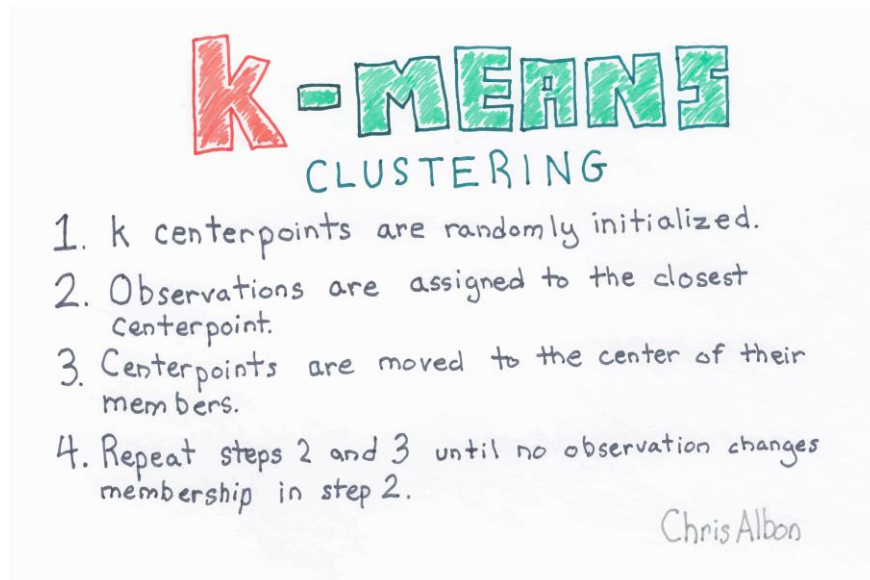 K-MEANS
CLUSTERING
1. k centerpoints are randomly initialized.
2. Observations are assigned to the closest
centerpoint.
3. Centerpoints are moved to the center of their
members.
4. Repeat steps 2 and 3 until no observation changes
membership in step 2.
Chris Albon